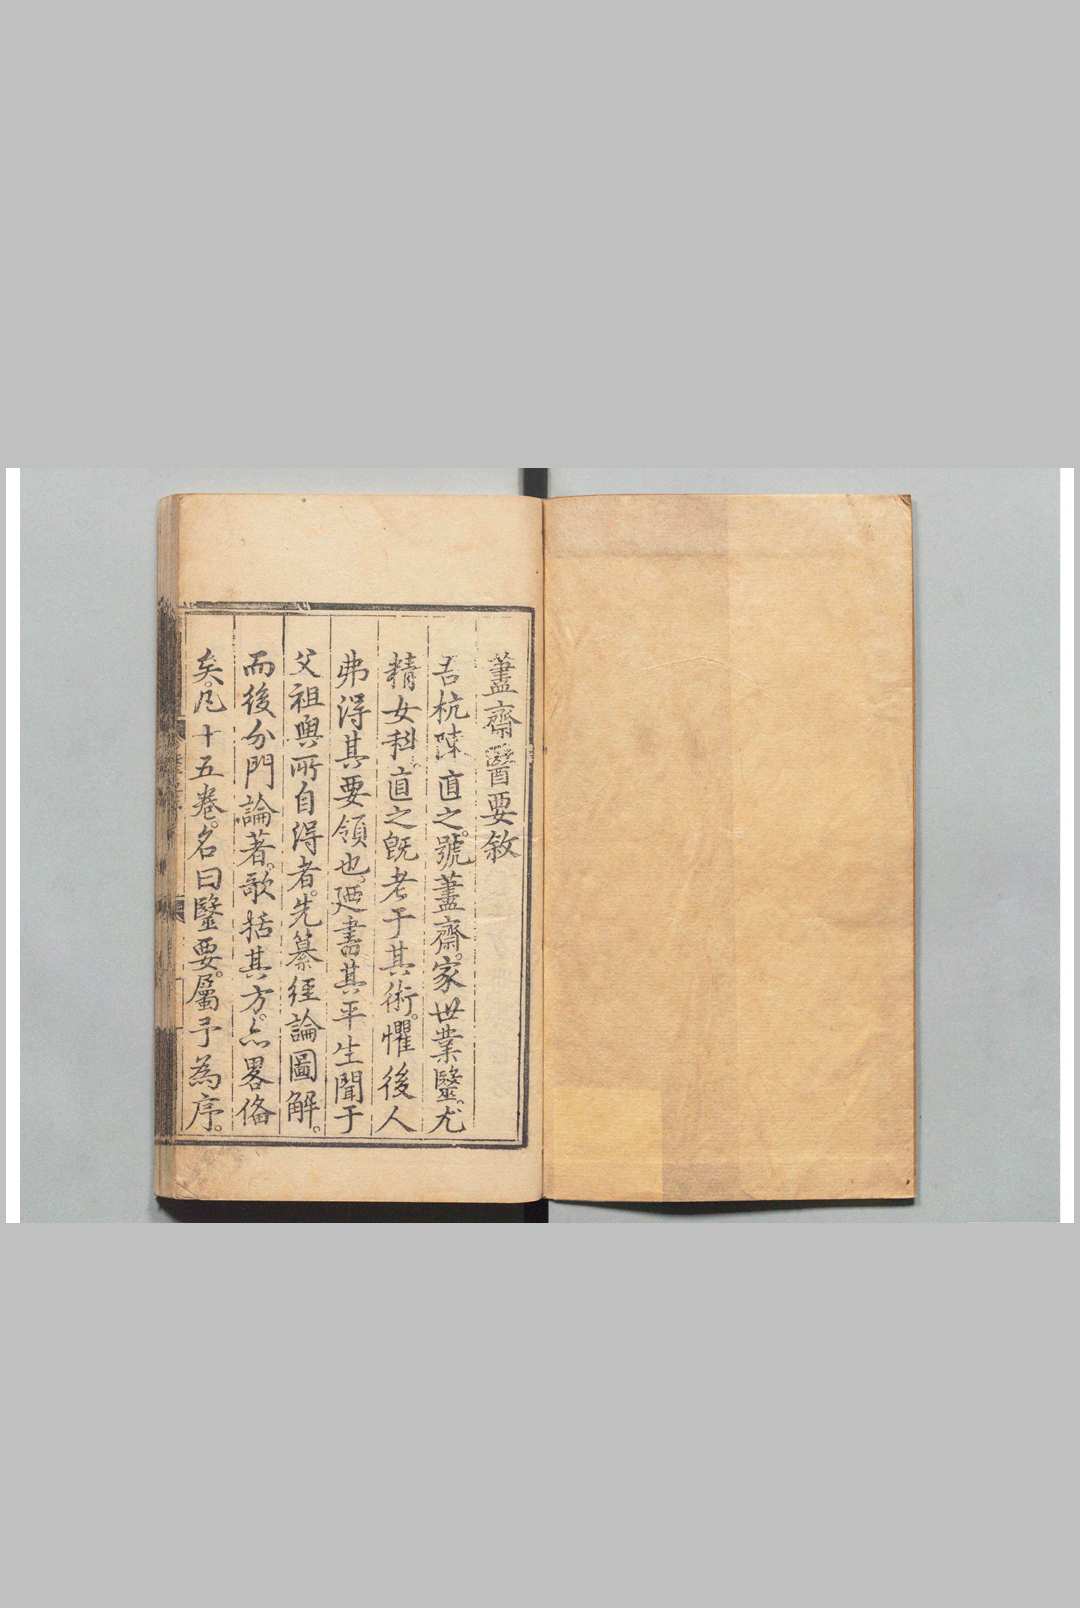 藎齋醫要敘
吾杭陳直之。號藎齋。家世業毉。尤
精女科。直之旣老于其術。懼後人
弗得其要領也。廼書其平生聞于
父祖與所自得者。先纂經論圖解。
而後分門論著。歌括其方。亦畧俻
矣。凡十五卷。名曰毉要。屬予為序。